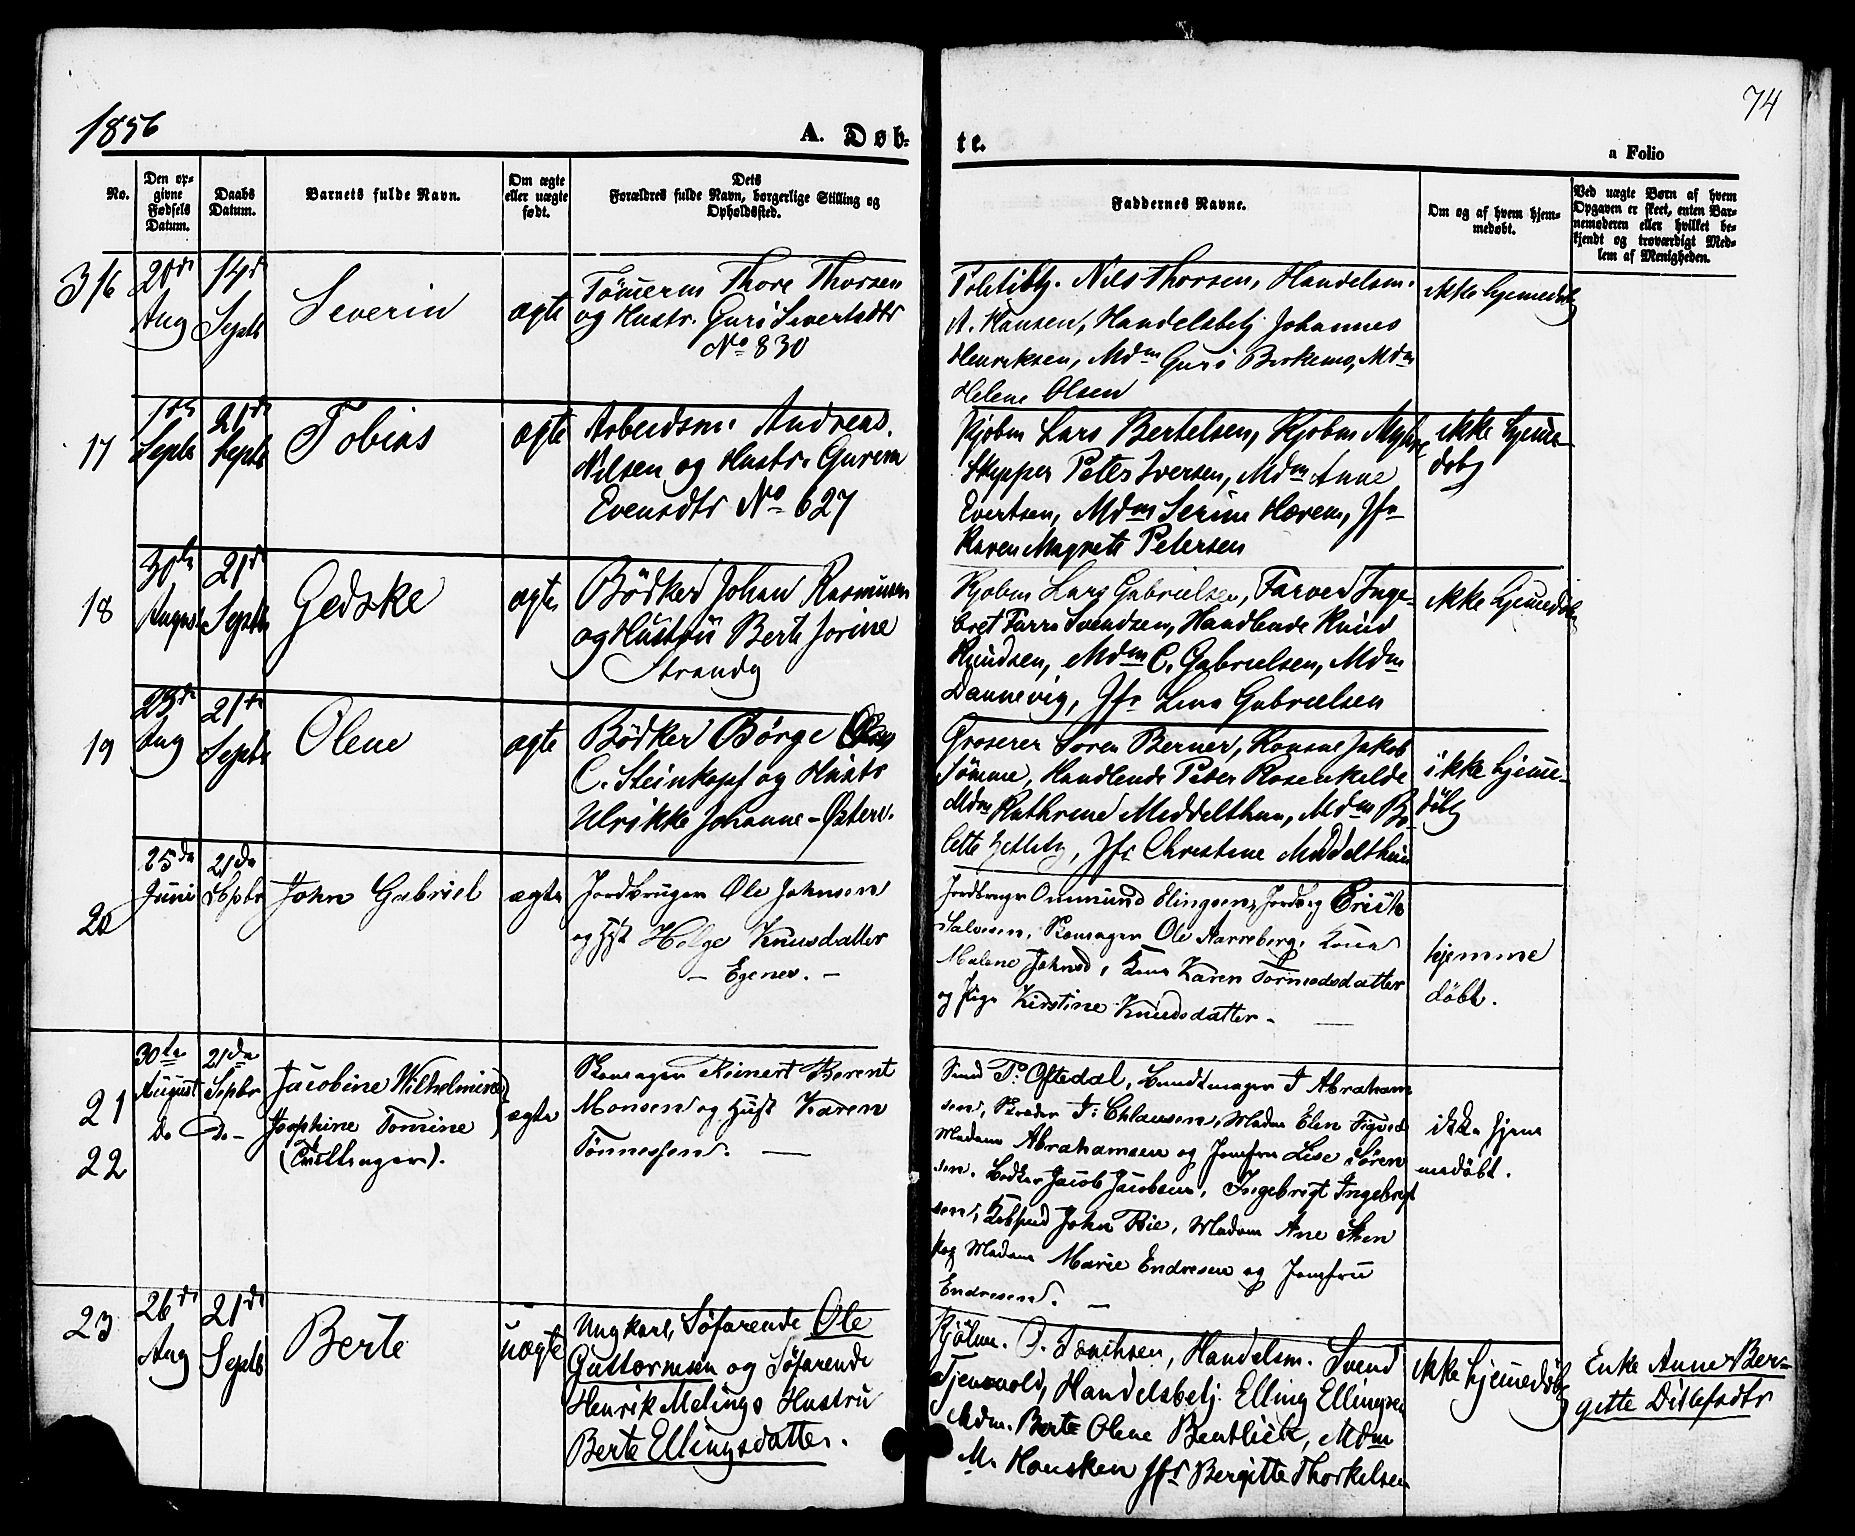 1856
A. Døb-
te.
74
a Folio
No.
Den op-
givne
Fødsels
Datum.
Daabs
Datum.
Barnets fulde Navn.
Om ægte
eller uægte
født.
Dets
Forældres fulde Navn, borgerlige Stilling og
Opholdssted.
Faddernes Navne.
Om og af hvem hjem-
medøbt.
Ved uægte Børn af hvem
Opgaven er skeet, enten Bar-
nemoderen eller hvilket be-
kjendt og troværdigt Med-
lem af Menigheden.
316
20de
Aug
14de
Septb
Severin
ægte
Tömerm Thore Thorsen
og Hustr. Guri Sivertsdtr
No 830
Politibtj. Nils Thorsen, Handelsm.
A. Hansen, Handelsbetj Johannes
Henriksen, Mdm Guri Birkemo, Mdm
Helene Olsen
ikke hjemedøbt
17
1ste
Septb
21de
Septb
Tobias
ægte
Arbeidsm. Andreas
Nilsen og Hustr. Gurine
Evensdtr No 627
Kjobm Lars Bertelsen, Kjobm Myhre
Skipper Peter Iversen, Mdm Anne
Evertsen, Mdm Serine Hoveni, Jfr
Karen Magrete Petersen
ikke hjeme-
døbt
18
30te
August
21de
Septb
Gedske
ægte
Bödker Johan Rasmusen
og Hustru Berte Jorine
Strandg
Kjobm Lars Gabrielsen, Farver Inge-
bret Svendsen, Handlende Knud
Knudsen, Mdm C. Gabrielsen, Mdm
Dannevig, Jfr Lina Gabrielsen
ikke hjemedøbt
19
23de
Aug
21de
Septb
Olene
ægte
Bödker Børge
C. Steinkopf og Hustr
Ulrikke Johanne - Østerv.
Groserer Soren Berner, Konsul Jakob
Sömme, Handlende Peder Rosenkilde
Mdm Kathrine Middelthun, Mdm Bo-
lette Zetlitz, Jfr Christine Middelthun
ikke hjeme-
døbt
20
25de
Juni
21de
Sepbr
John Gabriel
ægte
Jordbruger Ole Johnsen
og Hust Helge Knusdatter
- Egenes. -
Jordbruger Ommund Elingsen, Jordbrg Erik
Salvesen, Skomager Ole Aarreberg, Kone
Malene Johnsd, Kone Karen Tormodsdatter
og Pige Kirstine Knudsdatter -
hjemme
döbt.
21
22
30te
August
do
21de
Sepbr
Do -
Jacobine Wilhelmine
Josephine Tomine
(Tvillinger).
ægte
Skomager Reinert Berent
Monsen og Hust Karen
Tönnessen.
Smed P. Oftedal, Bundtmager T Abraham-
sen, Skræder T. Chlausen, Madm Elen Tigved
Madame Abrahamsen og Jomfru Lise Sören-
sen. Bödker Jacob Jacobsen, Ingebrigt Ingebrigt-
sen, John Rie, Madam Ane
og Madam Marie Endresen og Jomfru
Endresen. -
ikke hjem
medöbt.
23
26de
Aug
21de
Septb
Berte
uægte
Ungkarl, Söfarende Ole
Guttormsen og Söfarende
Henrik Melings Hustru
Berte Ellingsdatter.
Kjöbm. Handelsm. Svend
Tjensvold, Handelsbetj. Elling Ellingsen
Mdm. Berte Olene Bentlich, Mdm
M. Hausken Jfr Bergitte Thorkelsen
ikke hjemedøbt
Enke Anne Ber-
gitte Ditlefsdtr